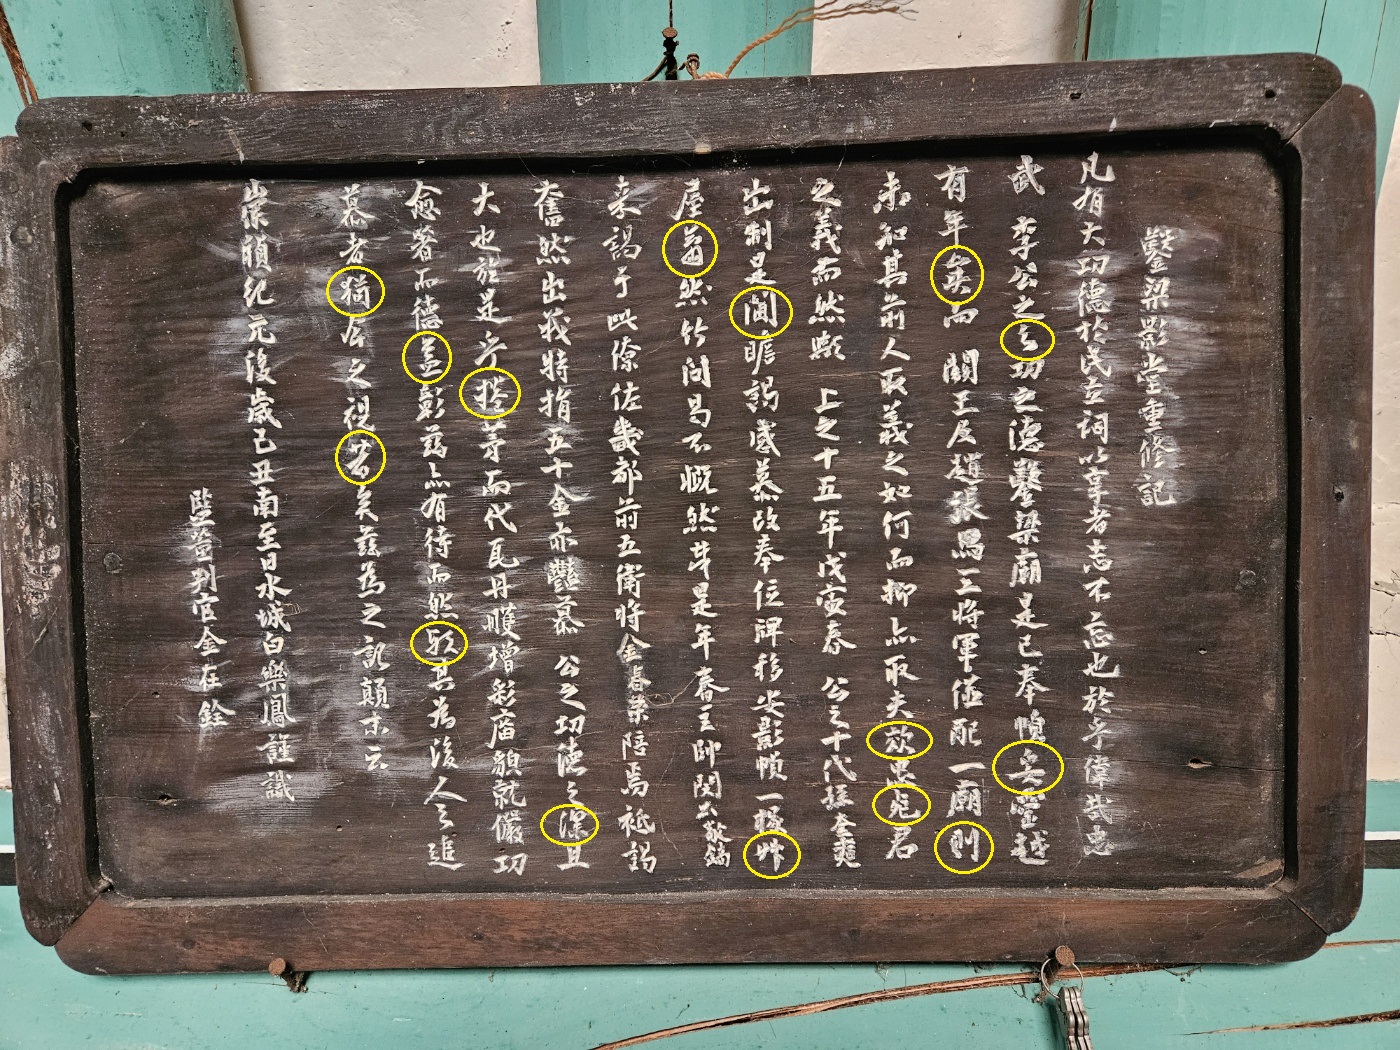 鑿梁影堂重修記
凡有大功德於民立祠以享者志不忘也於乎偉哉忠
武 李公之之功之德鑿梁廟是已奉幀妥靈越
有年矣而 關王及趙張馬三將軍俻配一廟則
未知其前人取義之如何而抑亦取夫忠君
之義而然歟 上之十五年戊寅春 公之十代孫奎奭
出制是閫瞻謁感慕改奉位牌移安影幀一 艸
屋 然竹間曷不慨然昔是年春主帥閔公敬鎬
來謁于此僚佐幾都前五衛將金春榮陪焉祗謁
舊然出我特捐五十金亦 慕 公之功德之深且
大也於是乎捲茅而代瓦丹雘增彩廟貌就儼功
愈著而德益彰茲亦有待而然歟其爲後人之追
慕者猶 公之視昔矣茲爲之記顛末云
崇禎紀元後歲己丑南至日水城白樂鳳謹識
監董判官金在銓